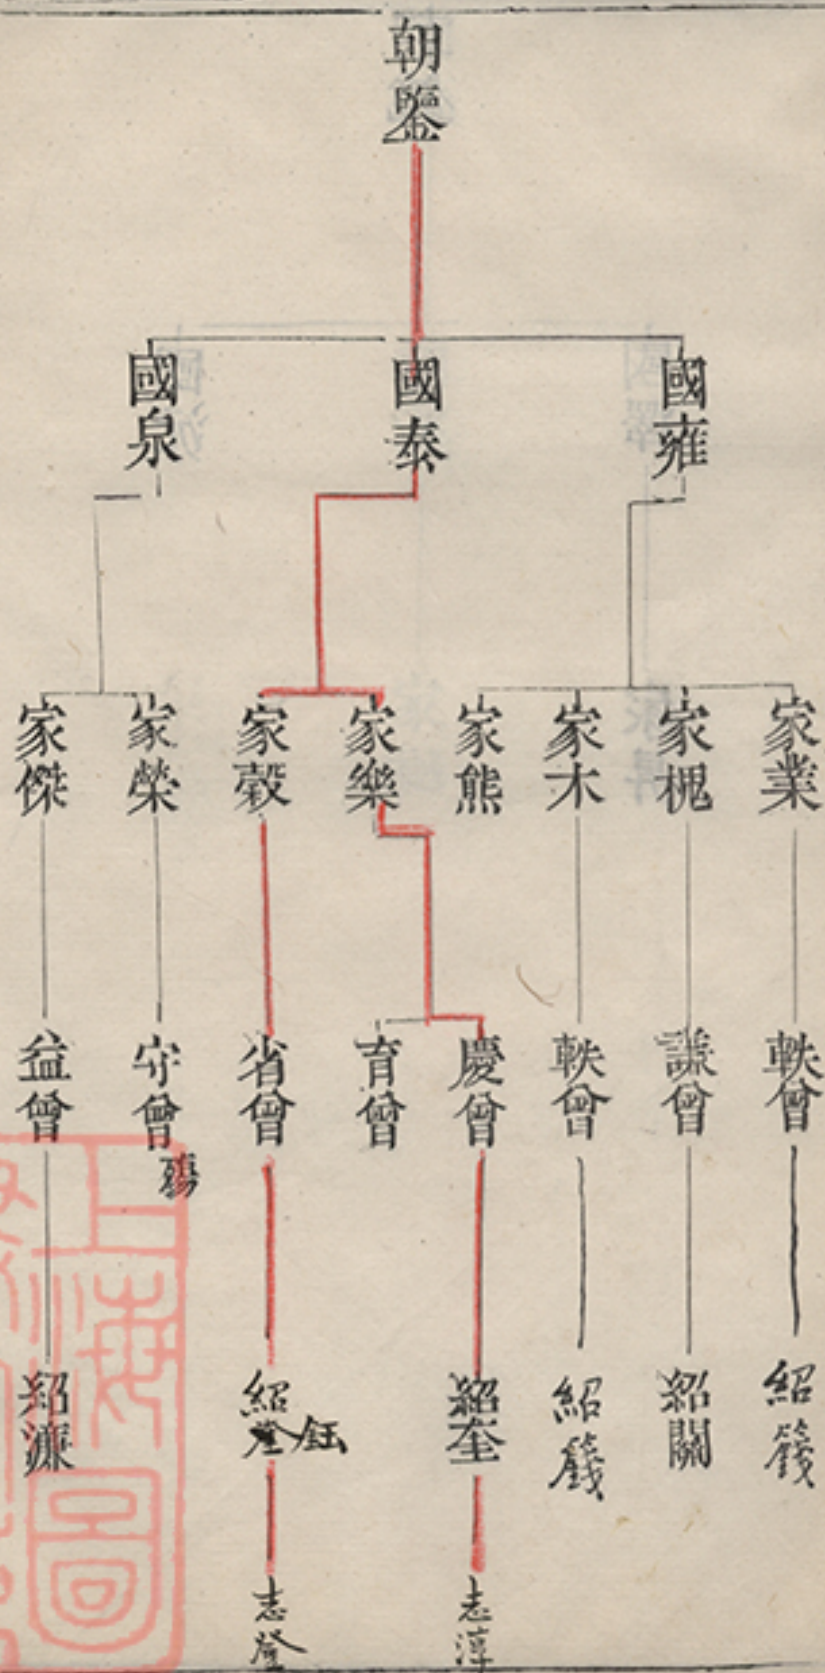 朝鑒
國雍
國泰
國泉
家業
家槐
家木
家熊
家樂
家穀
家榮
家傑
軼曾
謙曾
軼曾
慶曾
育曾
省曾
守曾 殤
益曾
紹籛
紹關
紹籛
紹奎
紹 鈺
紹濂
志淳
志登
上海圖